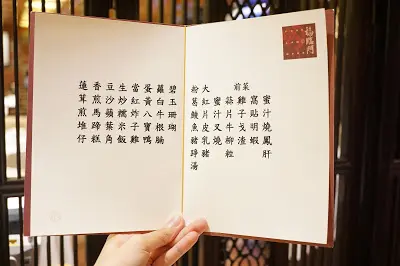 前菜
蜜汁燒鳳肝
窩貼明蝦
雞子戈渣
蒜片牛柳粒
蜜汁叉燒
大紅片皮乳豬
粉葛鯪魚豬踭湯
碧玉珊瑚
蘿白牛根腩
蛋黃八寶鴨
當紅炸子雞
生炒糯米飯
豆沙蘋葉角
香煎馬蹄糕
蓮茸煎堆仔